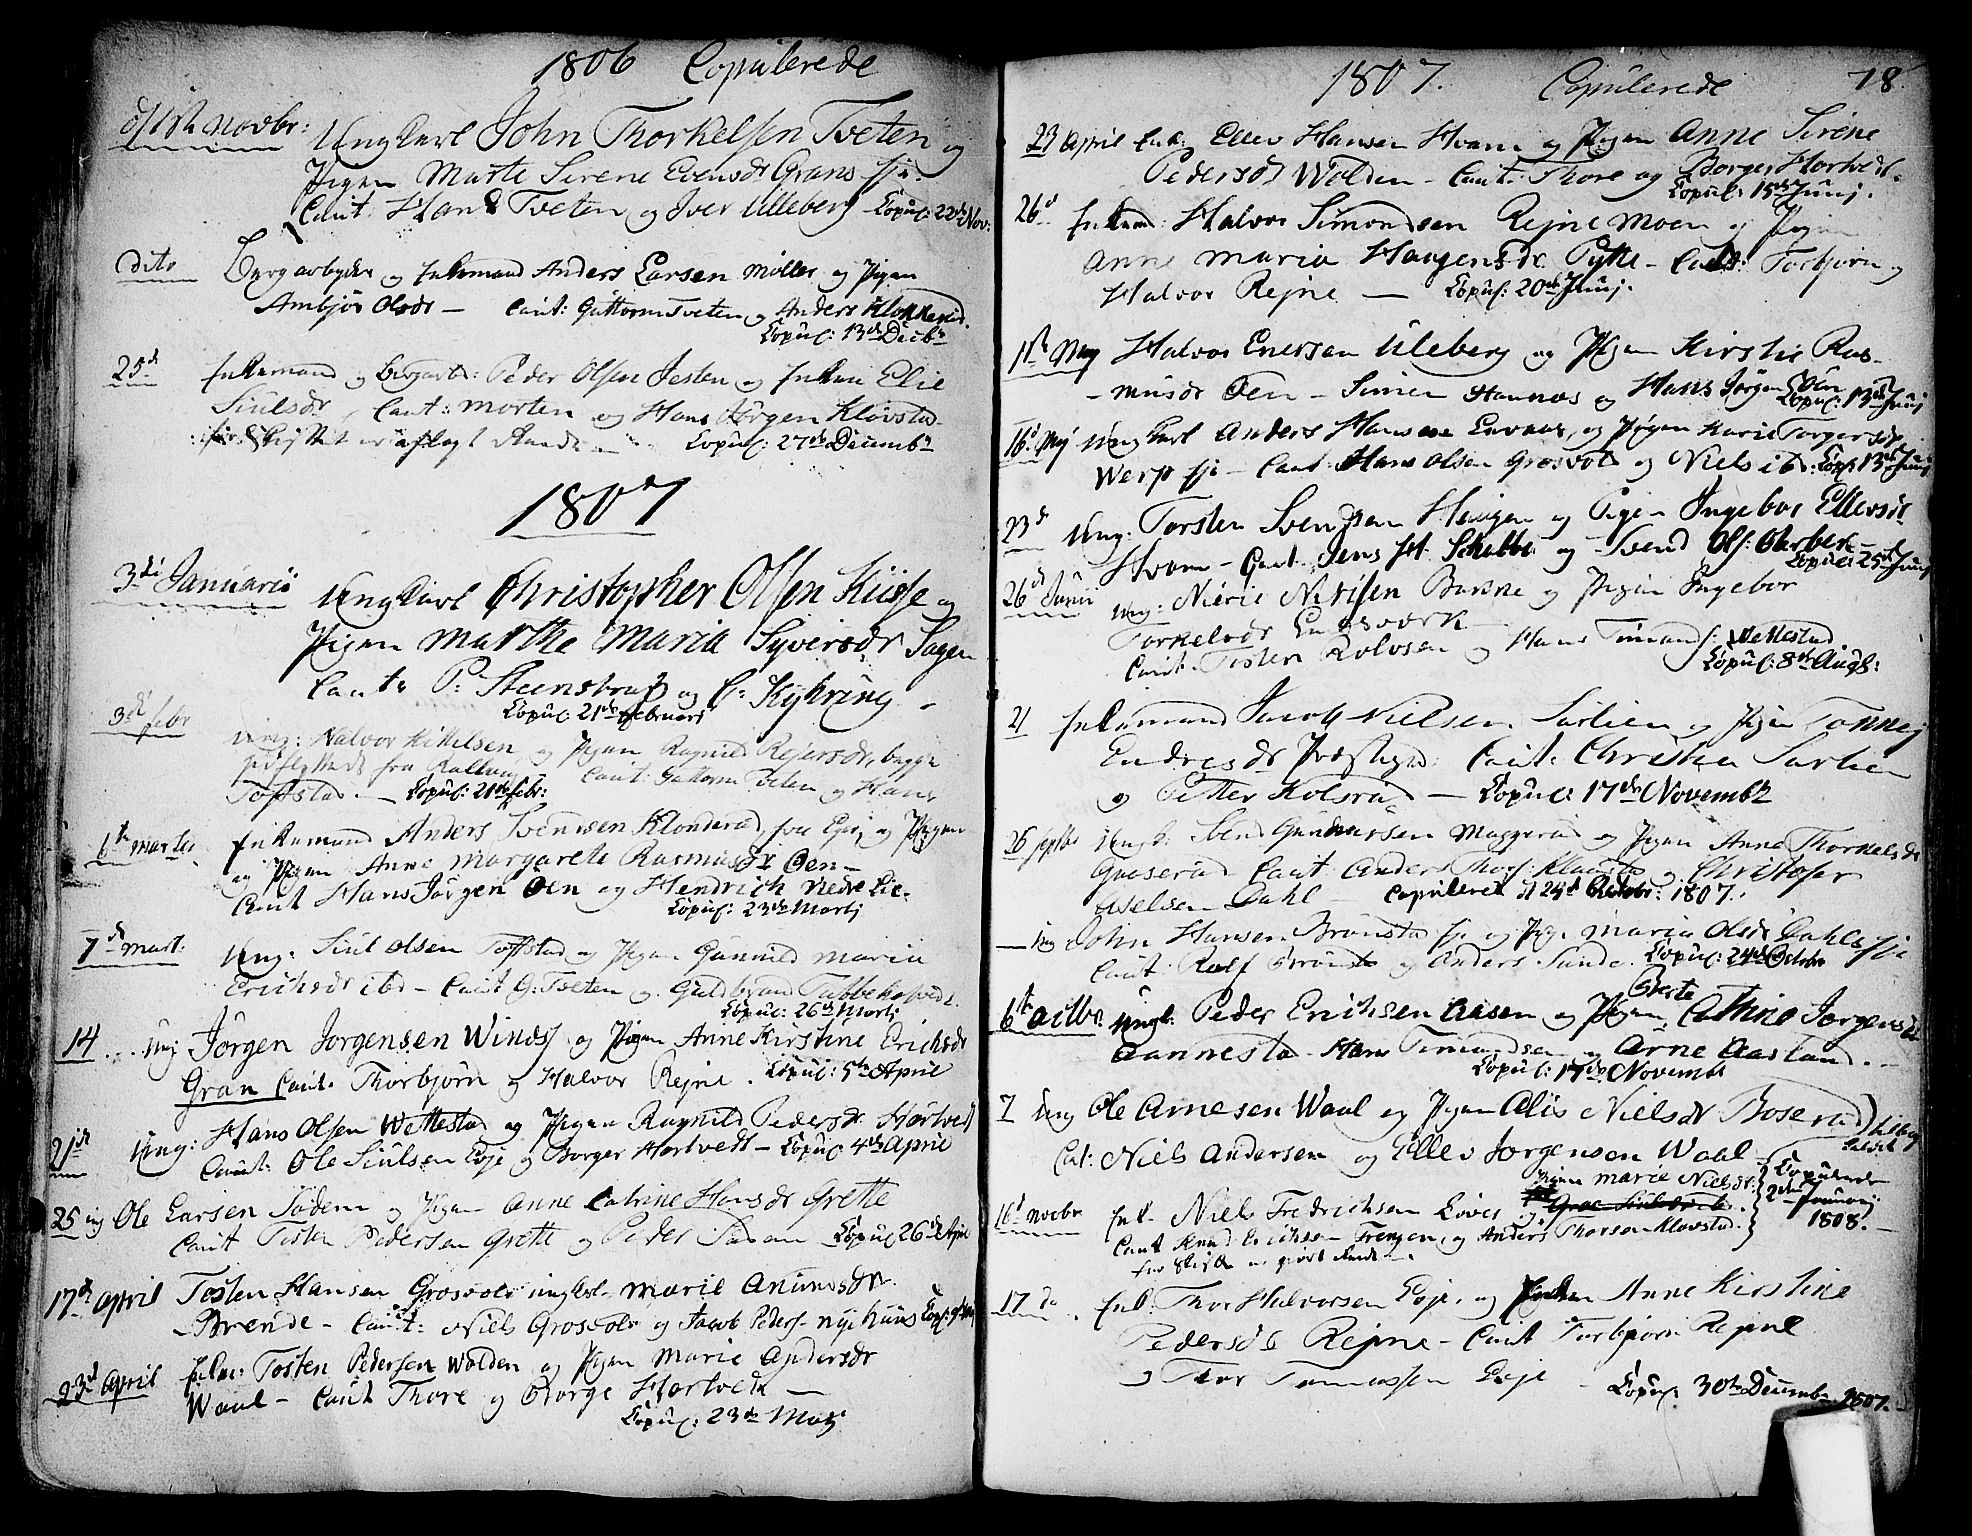 1806 Copulerede
1ste Novbr: Ungkarl John Thorkelsen Tveten og
Pigen Marte Sirene Evensdr Grans eje.
Caut: Hans Tveten og Iver Ulleberg - Copul: 22de Nov:
dito Bergarbejder og Enkemand Anders Larsen Møller og Pigen
Ambjør Olsdr - Caut: Guttorm Tveten og Anders
Copul: 13de Decbr
25d Enkemand og Bergarb: Peder Olsen Jesten og Enken Elie
Siulsdr, Caut: Morten og Hans Jørgen Kløvstad
for Skiftet er aflagt
Copul: 27de Decembr
1807
3die Januarii Ungkarl Christopher Olsen Kiisse og
Pigen Marthe Maria Syversdr Sagen
Cauts P: Steenstrup og C: Kyhring
Copul: 21de Februari
3di Febr Ung: Halvor Kittelsen og Pigen Ragnild Rejersdr, begge
fra Rollaug Caut: Guttorm Tveten og Hans
Toffstad. - Copul: 21de febr:
1te Martii Enkemand Anders Svensen Klonderød, fra Egri, og Pigen
og Pigen Anne Margarete Rasmusdr Øen -
Caut Hans Jørgen Øen og Hendrich Nedre Lie -
Copul: 23de Martj
7d Mart. Ung: Siul Olsen Toffstad og Pigen Gunnild Maria
Erichsdr ibd - Caut G: Tveten og Guldbrand
Copul: 26de Martj
14 Ung Jørgen Jørgensen Winds og Pigen Anne Kirstine Erichsdr
Gran Caut: Thorbjørn og Halvor Rejne. Copul: 5te April
21de Ung: Hans Olsen Wettestad og Pigen Ragnild Pedersdr Hortvedt
Caut: Ole Siulsen Eeje og Borger Hortvedt - Copul: 4de April
25 ung Ole Larsen Sødem og Pigen Anne Catrine Hansdr Grette
Caut Tosten Pedersen Grette og Peder Sødem Copul: 26de April
17d April Tosten Hansen Grosvold ungkarl - Marie Amundsdr
Brende - Caut: Niels Grosvold og Jacob Peders. Nyehuus
23d April Enkem: Tosten Pedersen Wolden og Pigen Marie Andersdr
Waal - Caut Thore og Borge Hortvedt -
Copul: 23de Maj
1807. Copulerede 78.
23 April Enk: Ellev Hansen Hvam og Pigen Anne Sirene
Pedersdr Wolden - Caut: Thore og Borger Hortvedt.
Copul: 15de Junj.
26d Enkemd: Halvor Simonsen Rejne Moen og Pigen
Anne Maria Haagensdr Pytte - Caut: Torbjørn og
Halvor Rejne - Copul: 20de Junj.
1ste Maj Halvor Enersen Uleberg og Pigen Kirstie Ras-
- musdr Øen - Simen Hannaas og Hans Jørgen Øen
Copul: 13de Junj
16d Maj Ungkarl Anders Hansen Enraas, og Pigen Karie Torgersdr
Werp eje - Caut: Hans Olsen Grosvold og Niels ibd: Copl: 13de Junj
23d Ung: Torsten Svensen Haugen og Pigen Ingebor Ellevsdr
Hvam - Caut. Jens H. Schelbe og Svend Ols: Aarbek -
Copul: 25de Junj
26d Junii Ung: Nierie Nirisen Bakke og Pigen Ingebor
Torkelsdr Eidsværk -
Caut: Tosten Rolvsen og Hans Timands: Wettestad
Copul: 8de Augs:
21 Enkemand Jacob Nielsen Sørlien og Pigen Tonnej
Endresdr Præstegd: Caut: Christen Sørlien
og Petter Kolsrud - Copul: 17de Novembr
26 Septbr Ungk. Svend Gundersen Maggerud og Pigen Anne Thorkelsdr
Guuserud Caut Anders Thors: Kløvstad og Christofer
Axelsen Dahl - Copuleret d 24d Octobr: 1807.
- Ung John Hansen Brønstad eje og Pige Maria Olsdr Dahls eje
Caut: Rolf Brønstd og Anders Sunde. Copul: 24de Octobr
6te Octbr. Ungk: Peder Erichsen Aasen og Pigen Berte Cathrine Jørgensdr
Aannestad - Hans Timandsen og Arne Aasland.
Copul: 17de Novembr
7 Ung Ole Arnesen Waal og Pigen Alis Nielsdr Boserud
Cat: Niels Andersen og Ellev Jørgensen Waal
16d Novbr Enk. Niels Fredrichsen Løver og Pigen Marie Nielsdr
Caut Knud Erichsen Frengen, og Anders Thorsen Kløvstad.
for Skifte er giort
Copulerede 2den Januarij 1808. -
17 do Enk: Thor Halvorsen Eeje, og Enken Anne Kirstine
Pedersdr Rejne - Caut Torbjørn Rejne
og Thor Tomassen Eeje - Copul: 30te Decembr 1807.